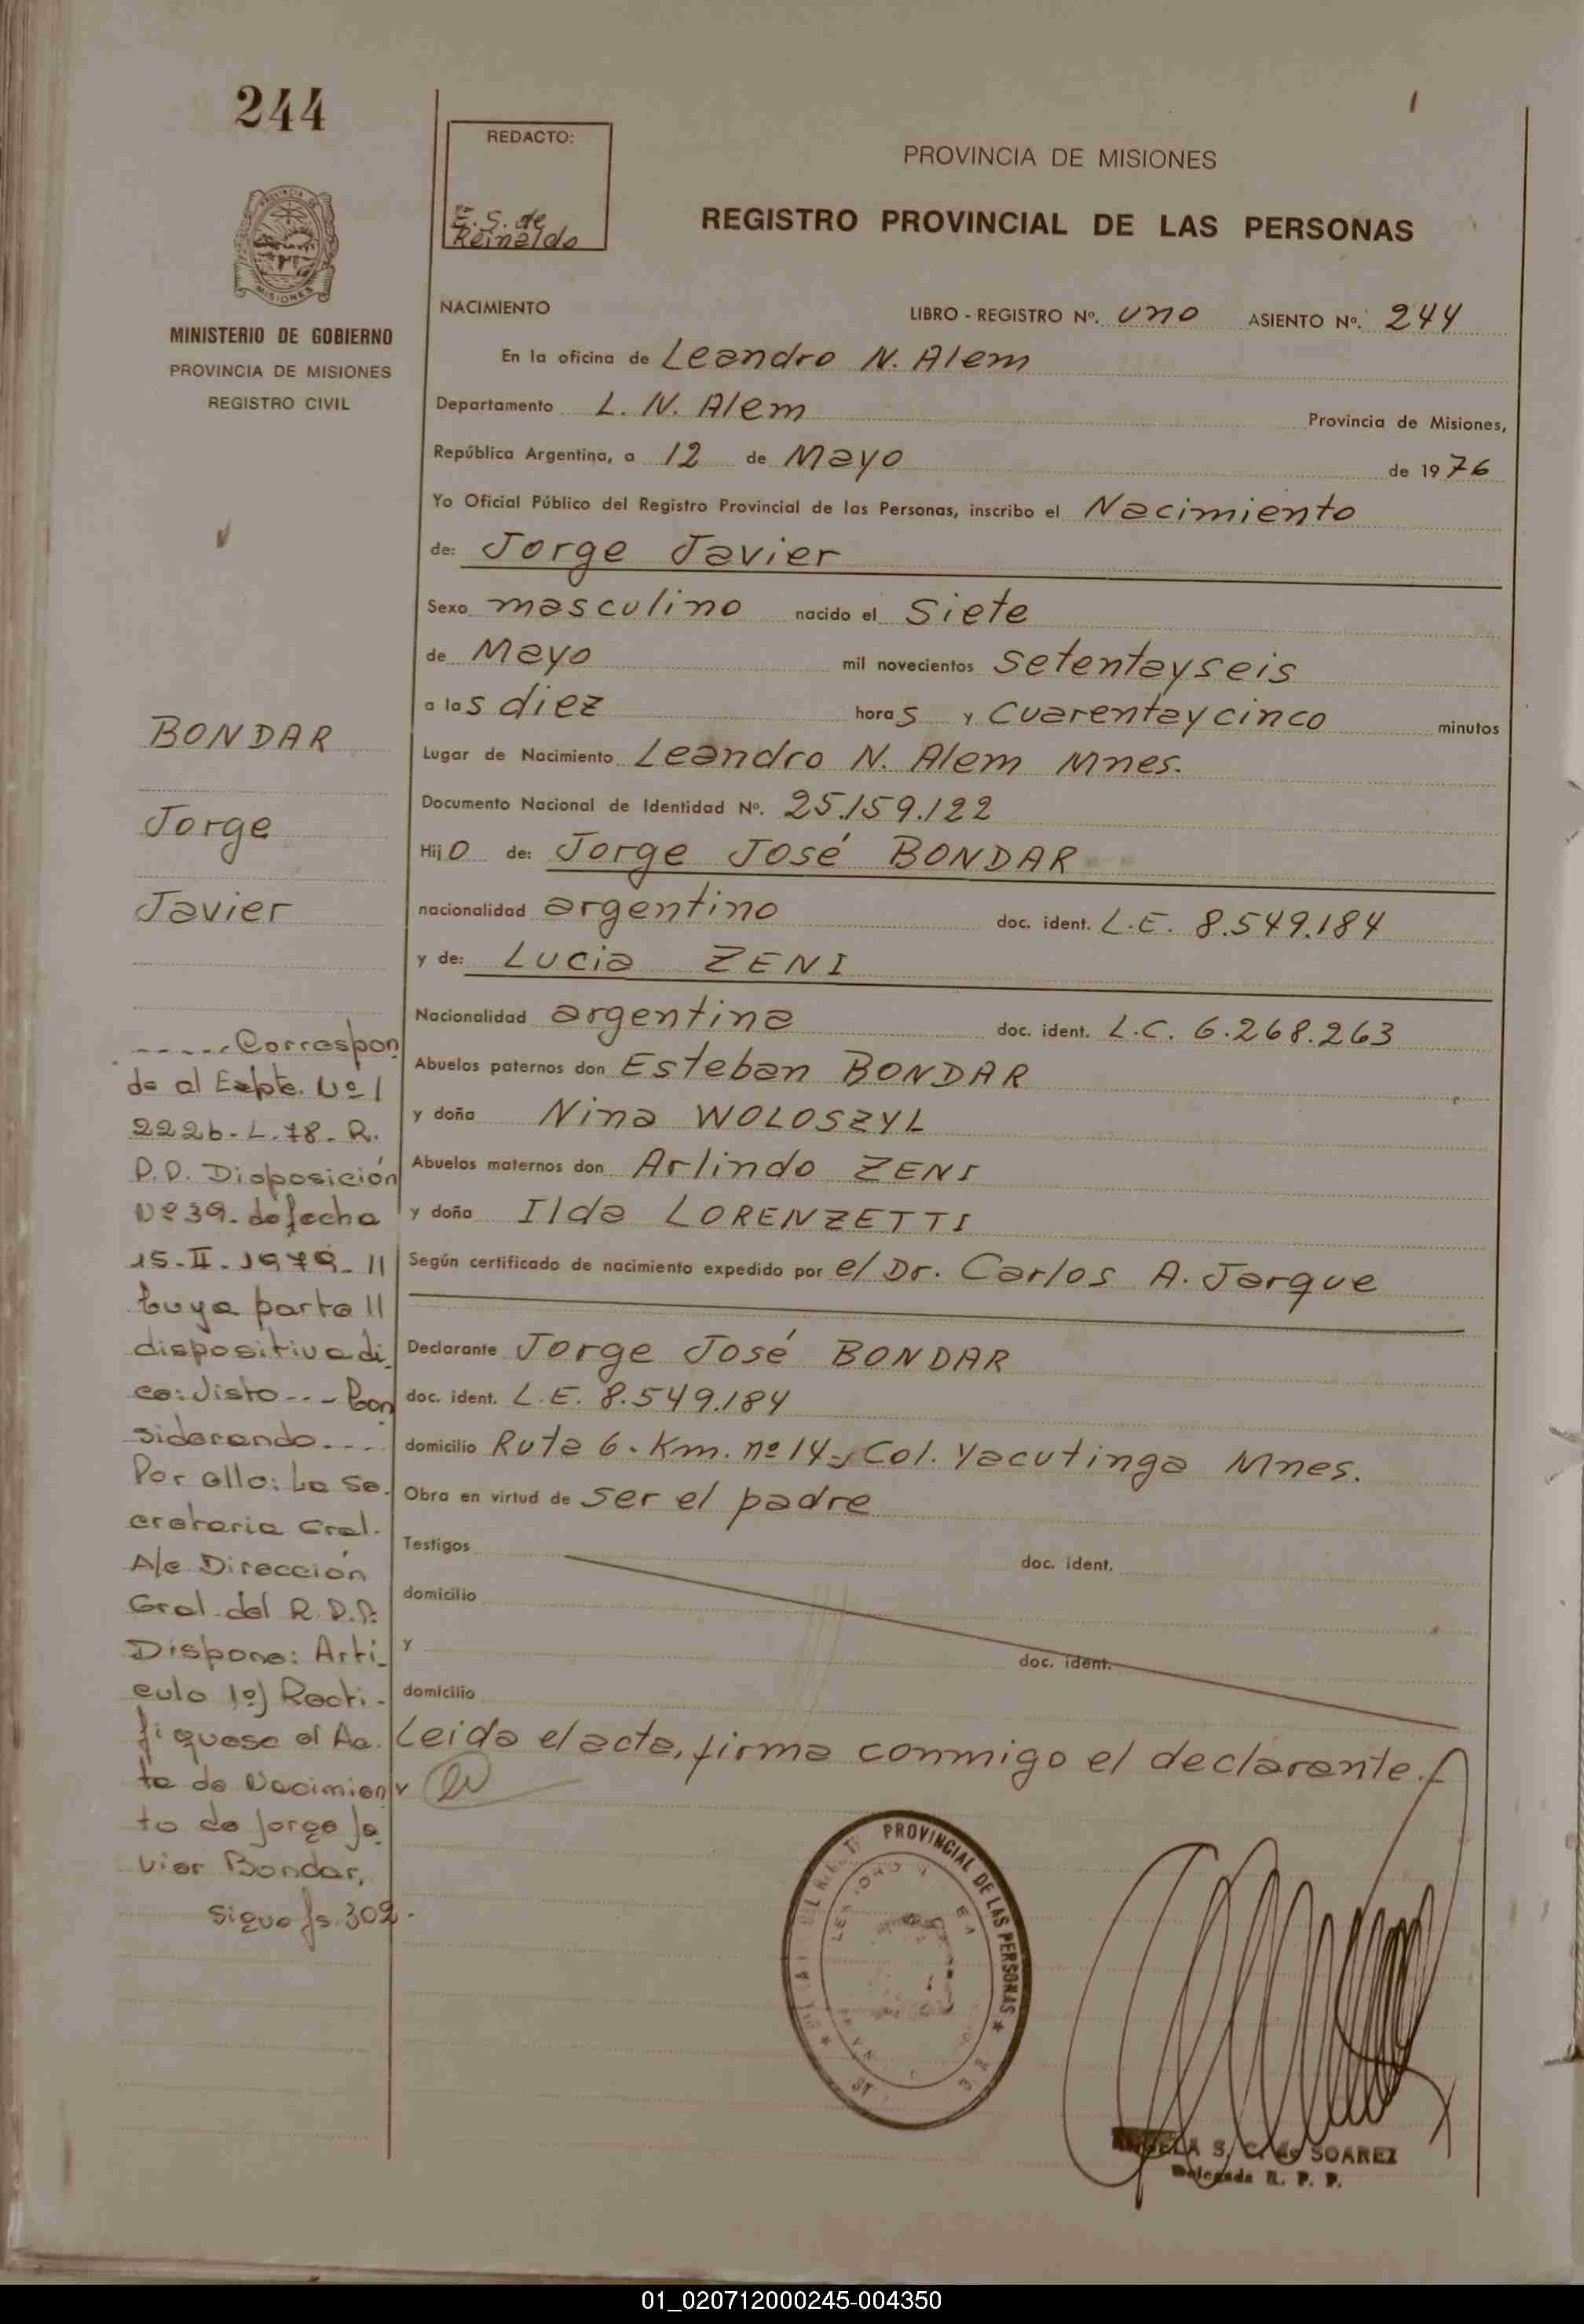 244
REDACTO:
E. S. de
Reinaldo
PROVINCIA DE MISIONES
REGISTRO PROVINCIAL DE LAS PERSONAS
MINISTERIO DE GOBIERNO
PROVINCIA DE MISIONES
REGISTRO CIVIL
NACIMIENTO LIBRO - REGISTRO Nº. uno ASIENTO Nº. 244
En la oficina de Leandro N. Alem
Departamento L. N. Alem Provincia de Misiones,
República Argentina, a 12 de Mayo de 1976
Yo Oficial Público del Registro Provincial de las Personas, inscribo el Nacimiento
de: Jorge Javier
Sexo masculino nacido el Siete
de Mayo mil novecientos setentayseis
a las diez horas y Cuarentaycinco minutos
Lugar de Nacimiento Leandro N. Alem Mnes.
Documento Nacional de Identidad Nº. 25.159.122
Hijo de: Jorge José BONDAR
nacionalidad argentino doc. ident. L.E. 8.549.184
y de: Lucia ZENI
Nacionalidad argentina doc. ident. L.C. 6.268.263
Abuelos paternos don Esteban BONDAR
y doña Nina WOLOSZYL
Abuelos maternos don Arlindo ZENI
y doña Ilda LORENZETTI
Según certificado de nacimiento expedido por el Dr. Carlos A. Jarque
Declarante Jorge José BONDAR
doc. ident. L.E. 8.549.184
domicilio Ruta 6. Km. nº 14, Col. Yacutinga Mnes.
Obra en virtud de ser el padre
Testigos doc. ident.
domicilio
y doc. ident.
domicilio
Leida el acta, firma conmigo el declarante.
BONDAR
Jorge
Javier
-----Correspon
de al Expte. Nº 1
2226-L.78-R.
P.P. Disposición
Nº 39. de fecha
15-II-1979-
Cuya parte
dispositiva di_
ce: Visto --- Con
siderando....
Por ello: La Se.
cretaria Gral.
A/c Dirección
Gral del R.P.P.
Dispone: Artí_
culo 1º) Recti-
fiquese el Ac.
ta de Nacimien
to de Jorge Ja_
vier Bondar,
sigue fs. 302.
PROVINCIAL DE LAS PERSONAS
S. C. de SOAREZ
Delegada R. P. P.
01_020712000245-004350